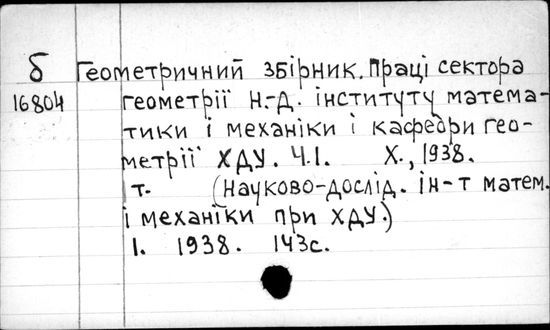 б Геометричний збірник. Праці сектора
16804 геометрії н.-д. інституту матема-
тики і механіки і кафедри гео-
метрії ХДУ. Ч.І. Х., 1938.
т. (Науково-дослід. ін-т матем.
і механіки при ХДУ.)
1. 1938. 143с.